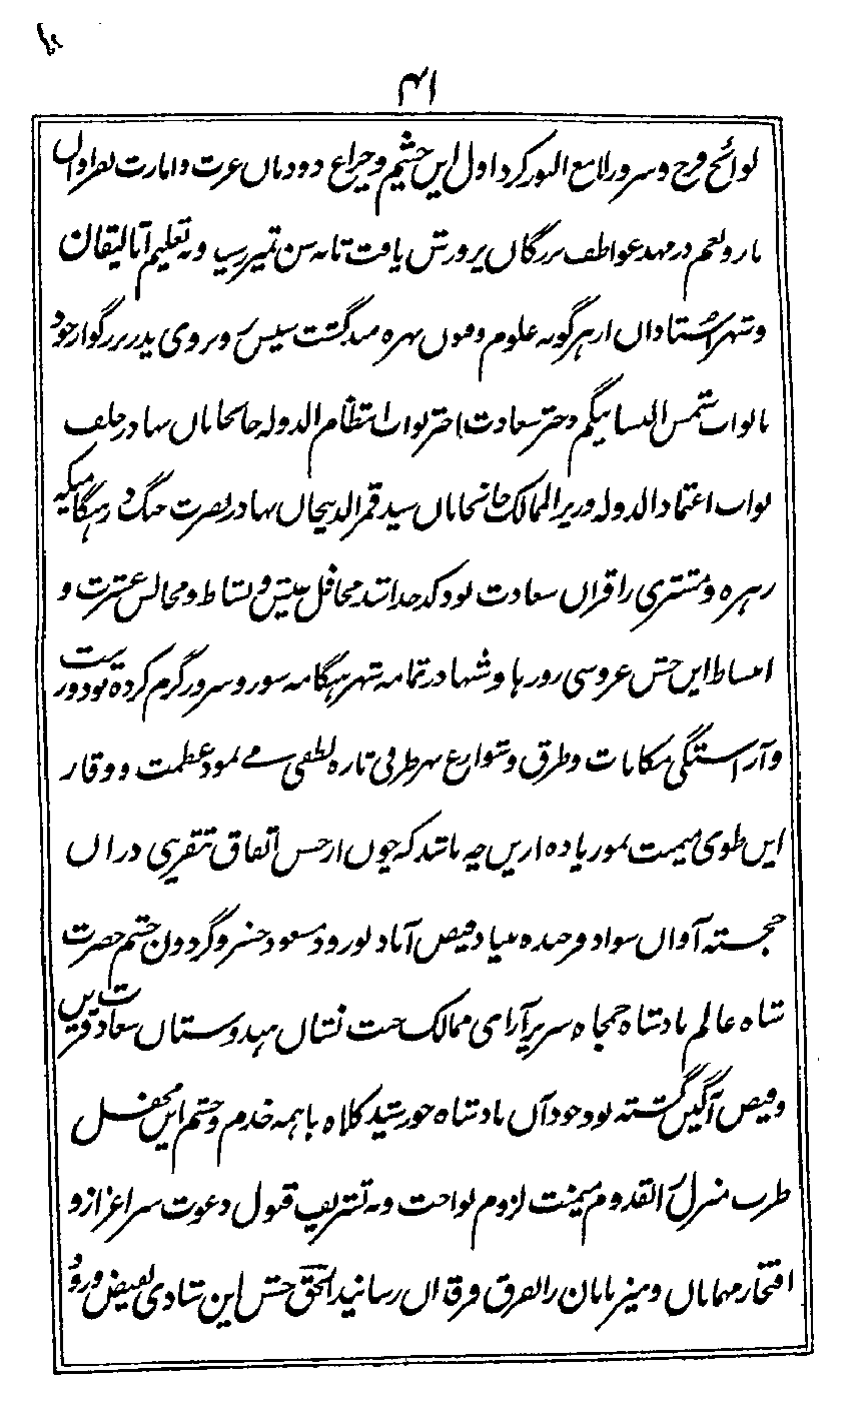 ۴۱
لوائح فرح و سرور لامع النور کرد اول این چشم و چراغ دودمان عزت و امارت بفراوان
ناز و نعم در مهد عواطف بزرگان پرورش یافت تا به سن تمیز رسید و به تعلیم اتالیقان
و استادان از هر گونه علوم و فنون بهره مند گشت سپس بروی پدر بزرگوار خود
با نواب شمس النسا بیگم دختر سعادت اختر نواب انتظام الدوله خانخانان بهادر خلف
نواب اعتماد الدوله وزیر الممالک خانخانان سید قمر الدیخان بهادر نصرت جنگ در هنگامیکه
زهره و مشتری را قران سعادت بود کدخدا شد محافل عیش و نشاط و مجالس عشرت و
انبساط این جشن عروسی روزها و شبها در تمامه شهر هنگامه سور و سرور گرم کرده بود و زینت
و آراستگی مکانات و طرق و شوارع بهر طرفی تازه لطفی می نمود عظمت و وقار
این طوی میمنت نمود زیاده ازین چه باشد که چون از حسن اتفاق تقریبی در آن
خجسته آوان سواد فرخنده بنیاد فیض آباد بورود مسعود خسرو گردون حشم حضرت
شاه عالم بادشاه جمجاه سریر آرای ممالک جنت نشان هندوستان سعادت قرین
و فیض آگین گشته بود خود آن بادشاه خورشید کلاه با همه خدم و حشم این محفل
طرب منزل را بقدوم میمنت لزوم نواخت و به تشریف قبول دعوت سر اعزاز و
افتخار مهمانان و میزبانان را بفرق فرقدان رسانید الحق جشن این شادی بفیض ورود